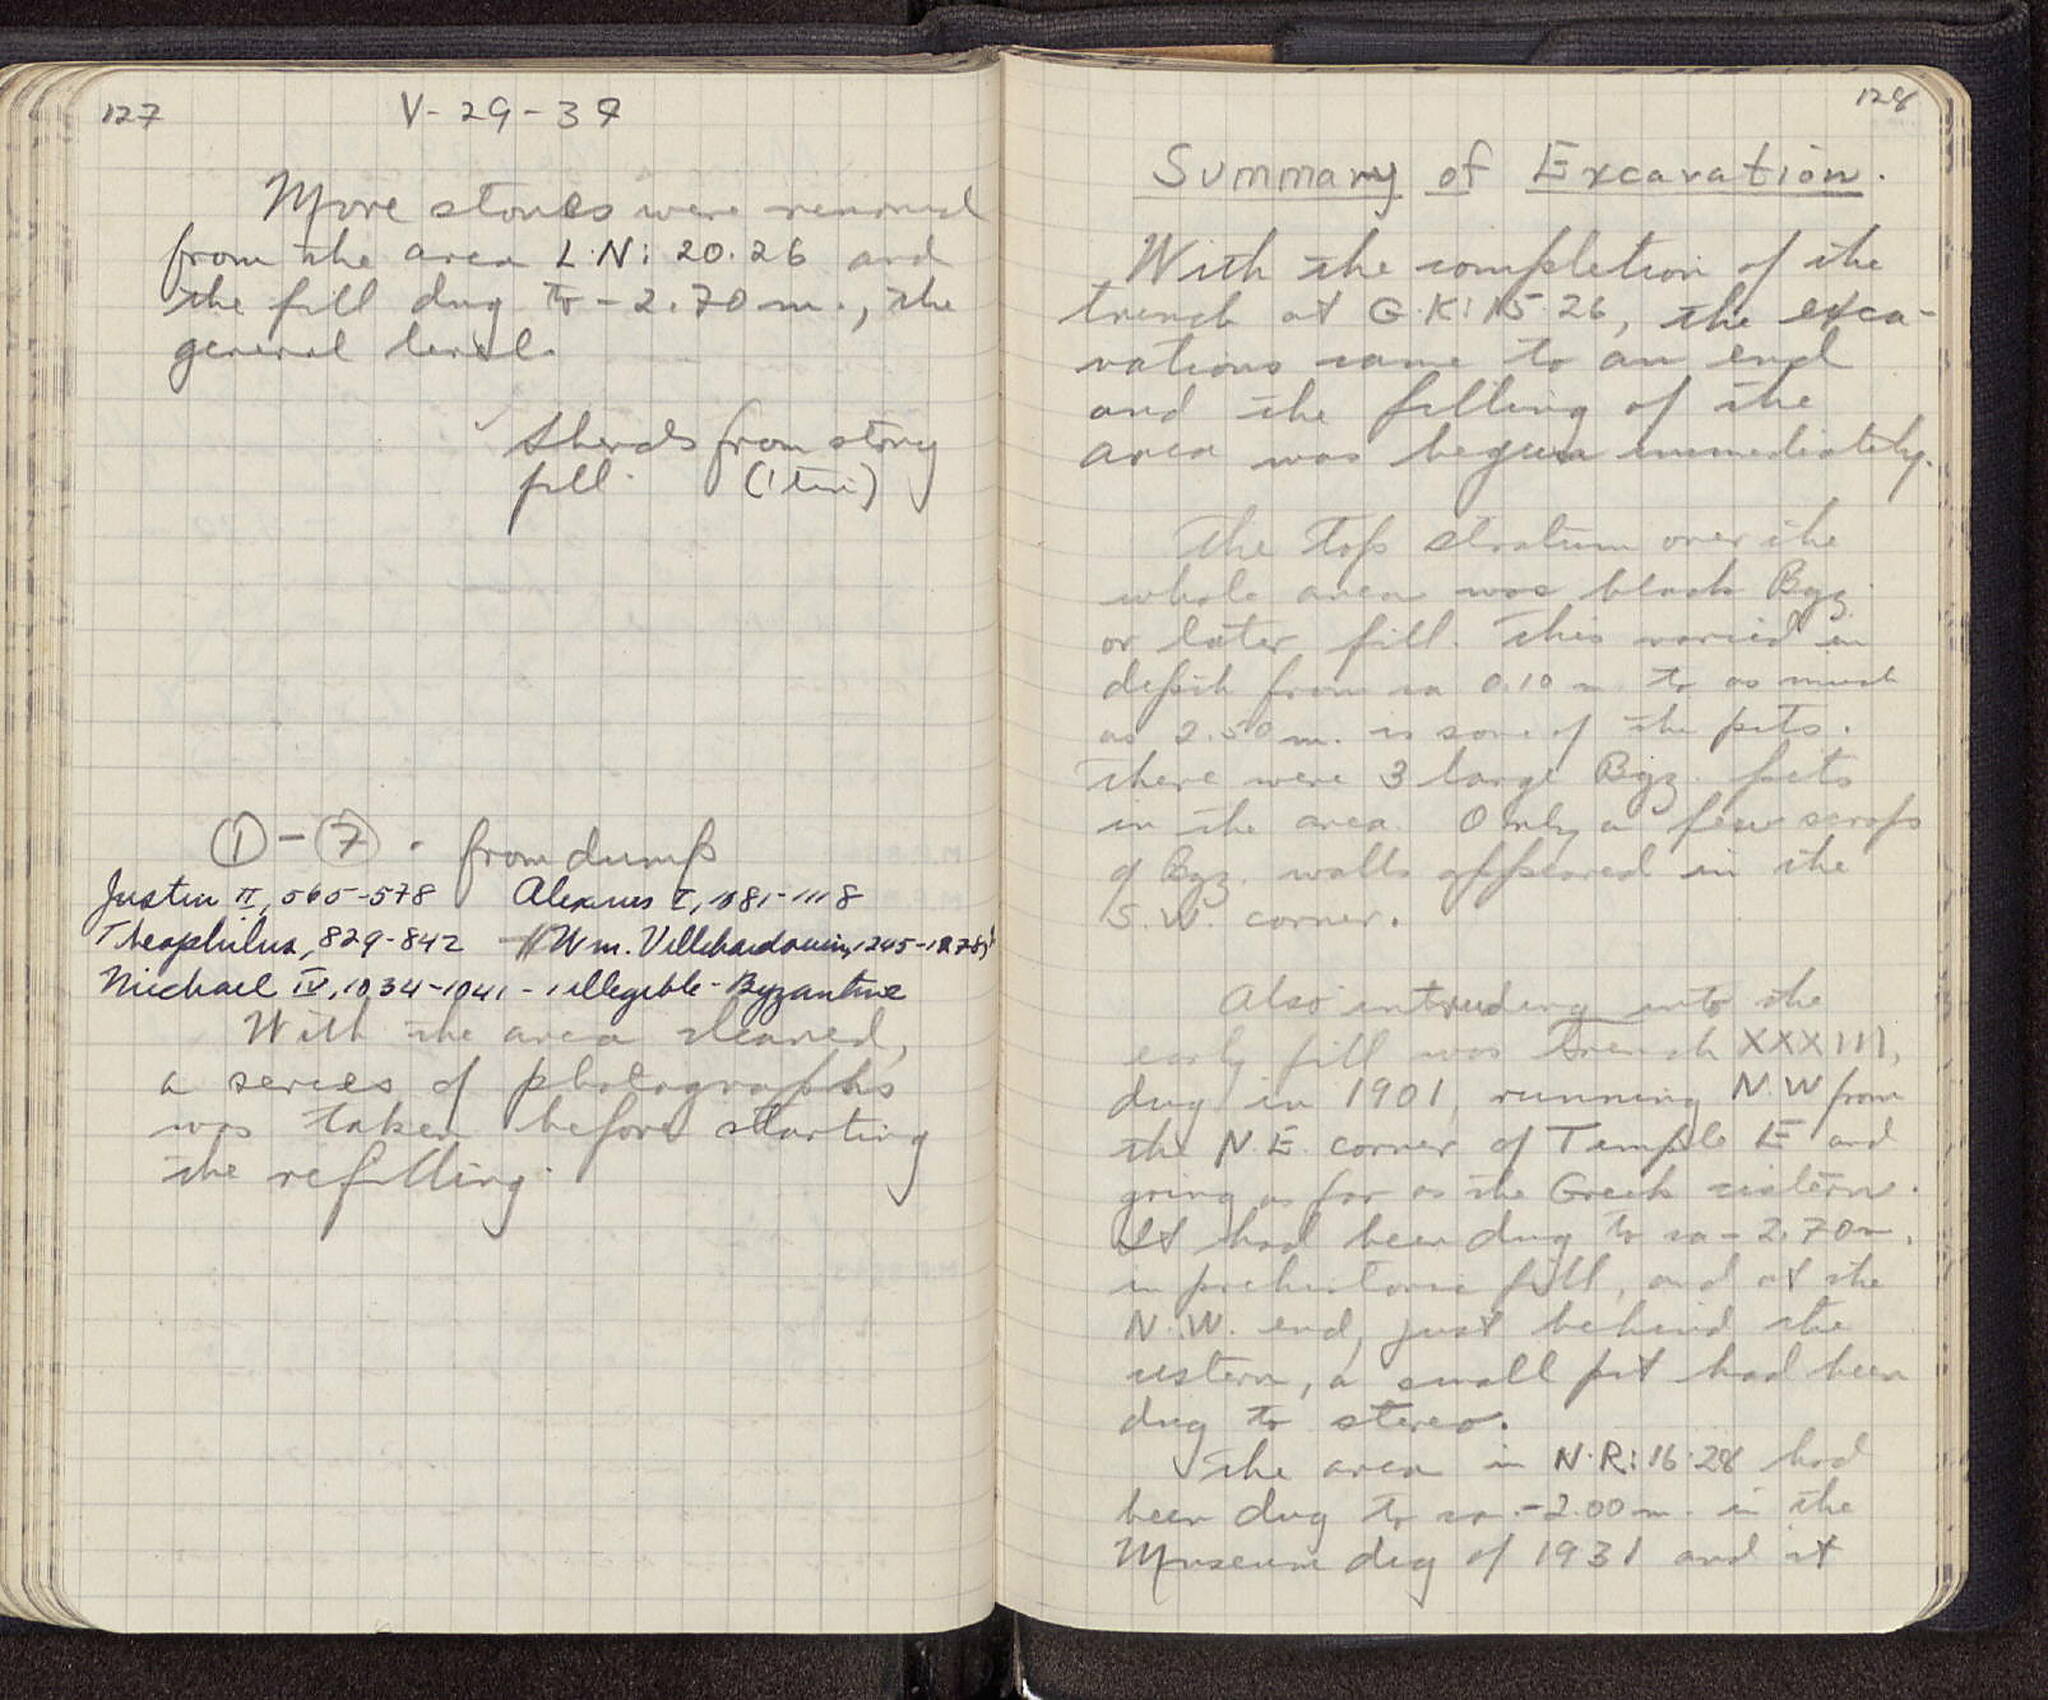 127
V-29-37
More stones were removed
from the area L·N: 20·26 and
the fill dug to -2.70 m., the
general level.
Sherds from stony
fill. (1 tin)
① - ⑦ · from dump
Justin II, 565-578 Alexius I, 1081-1118
Theophilus, 829-842 Wm. Villehardouin, 1245-1278
Michael IV, 1034-1041 - 1 illegible - Byzantine
With the area cleaned,
a series of photographs
was taken before starting
the refilling.
128
Summary of Excavation.
With the completion of the
trench at G·K: 15·26, the exca-
vations came to an end
and the filling of the
area was begun immediately.
The top stratum over the
whole area was black Byz.
or later fill. This varied in
depth from ca 0.10 m to as much
as 2.50 m. in some of the pits.
There were 3 large Byz. pits
in the area. Only a few scraps
of Byz. walls appeared in the
S.W. corner.
Also intruding into the
early fill was Trench XXXIII,
dug in 1901, running N.W from
the N.E. corner of Temple E and
going as far as the Greek cistern.
It had been dug to ca -2.70 m.
in prehistoric fill, and at the
N.W. end, just behind the
cistern, a small pit had been
dug to stereo.
The area in N·R: 16·28 had
been dug to ca. -2.00 m. in the
Museum dig of 1931 and it